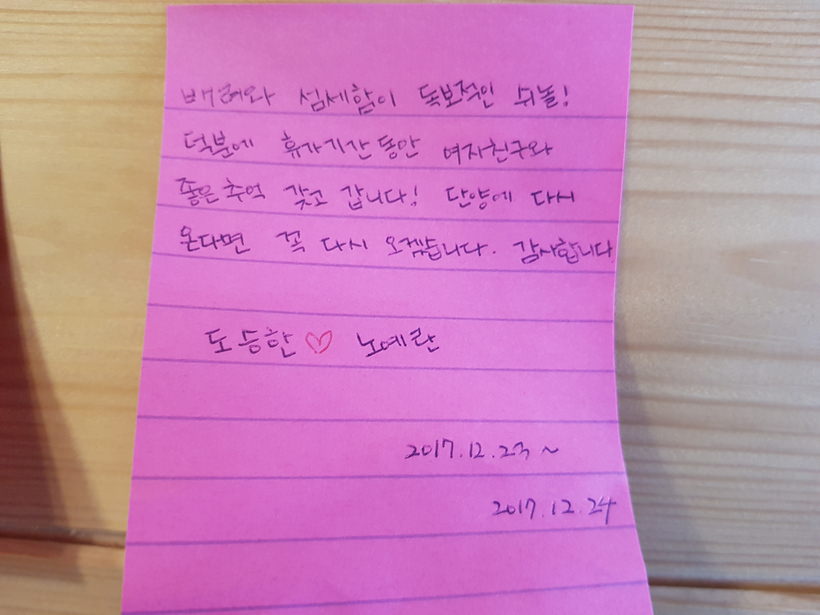 배려와 섬세함이 독보적인 쉬놀!
덕분에 휴가기간 동안 여자친구와
좋은 추억 갖고 갑니다! 단양에 다시
온다면 꼭 다시 오겠습니다. 감사합니다
도승한 ♡ 노예란
2017.12.23 ~
2017.12.24